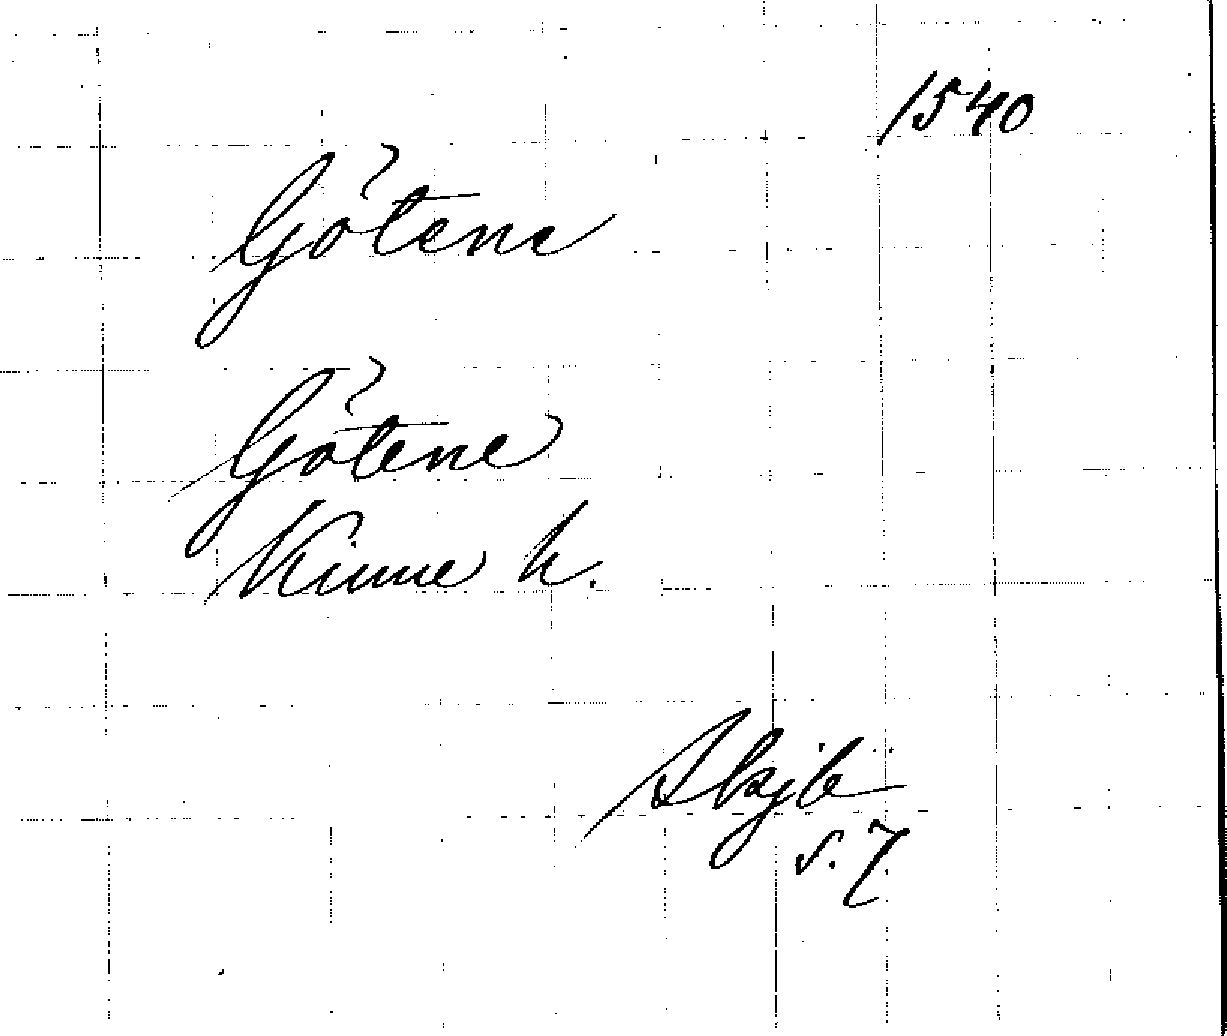 1540
Götene
Götene
Kinne h.
Skjb
s. 7.